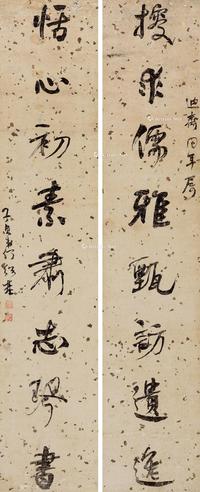 迪齋同年屬
搜求儒雅甄訪遺逸
恬心初素肅志琴書
子貞弟何紹基